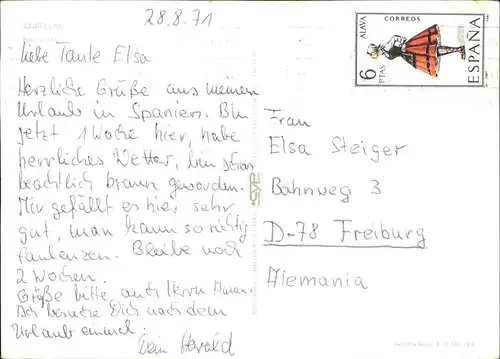 28.8.71
Liebe Tante Elsa
Herzliche Grüße aus meinem
Urlaub in Spanien. Bin
jetzt 1 Woche hier, habe
herrliches Wetter, bin schon
beachtlich braun geworden.
Mir gefällt es hier sehr
gut, man kann so richtig
faulenzen. Bleibe noch
2 Wochen.
Grüße bitte auch Herrn
Ich besuche Dich nach dem
Urlaub einmal.
Dein Harald
ALAVA
CORREOS
6
PTAS
ESPAÑA
Frau
Elsa Steiger
Bahnweg 3
D-78 Freiburg
Alemania